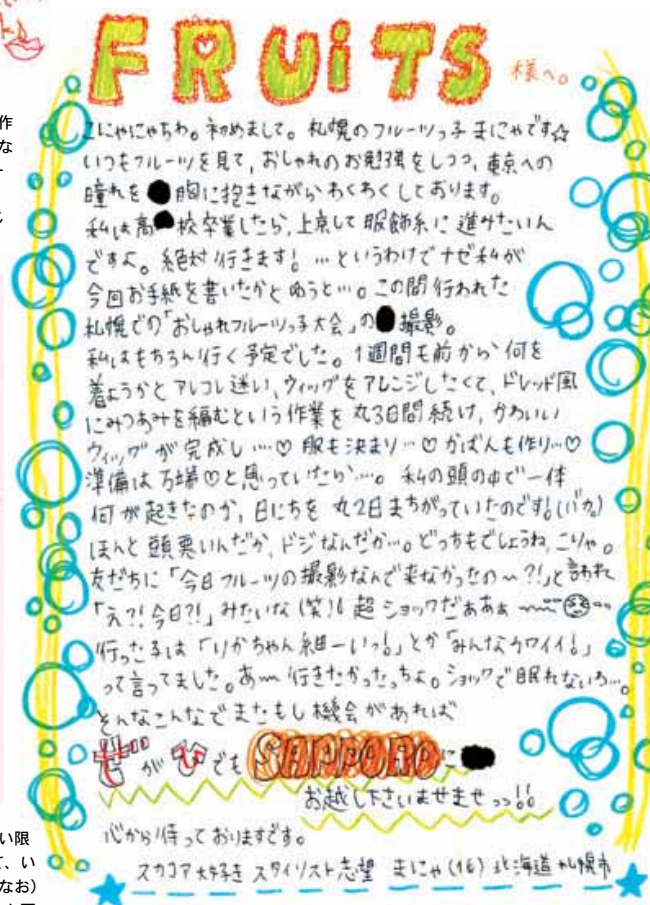 FRUiTS 様へ。
こにゃにゃちわ。初めまして。札幌のフルーツっ子まにゃです☆
いつもフルーツを見て、おしゃれのお勉強をしつつ、東京への
憧れを胸に抱きながらわくわくしております。
私は高校卒業したら、上京して服飾系に進みたいん
ですよ。絶対行きます！…というわけでナゼ私が
今回お手紙を書いたかとゆうと…。この間行われた
札幌での「おしゃれフルーツっ子大会」の撮影。
私はもちろん行く予定でした。1週間も前から何を
着ようかとアレコレ迷い、ウィッグをアレンジしたくて、ドレッド風
にみつあみを編むという作業を丸3日間続け、かわいい
ウィッグが完成し…♡服も決まり…♡かばんも作り…♡
準備は万端♡と思っていたら…。私の頭の中で一体
何が起きたのか、日にちを丸2日まちがっていたのです!(バカ)
ほんと頭悪いんだか、ドジなんだか…。どっちもでしょうね、こりゃ。
友だちに「今日フルーツの撮影なんで来なかったの〜?!」と言われ
「え?!今日?!」みたいな(笑)! 超ショックだぁぁぁ
行った子は「りかちゃん細ーいっ!」とか「みんなカワイイ!」
って言ってました。あ〜行きたかったっちょ。ショックで眠れないろ…。
そんなこんなでまたもし機会があれば
ぜがひでもSAPPOROに
お越し下さいませませっっ!!
心から待っておりますです。
スカコア大好きスタイリスト志望 まにゃ(16)北海道札幌市
作
な
い限
て、い
なお)